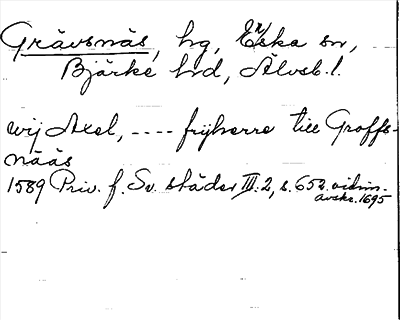 Grävsnäs, hg, Erska sn,
Bjärke hd, Älvsb. l.
wij Axel, ---- frijherre till Groffs-
nääs
1589 Priv. f. Sv. städer III:2, s. 652. vidim.
avskr. 1695